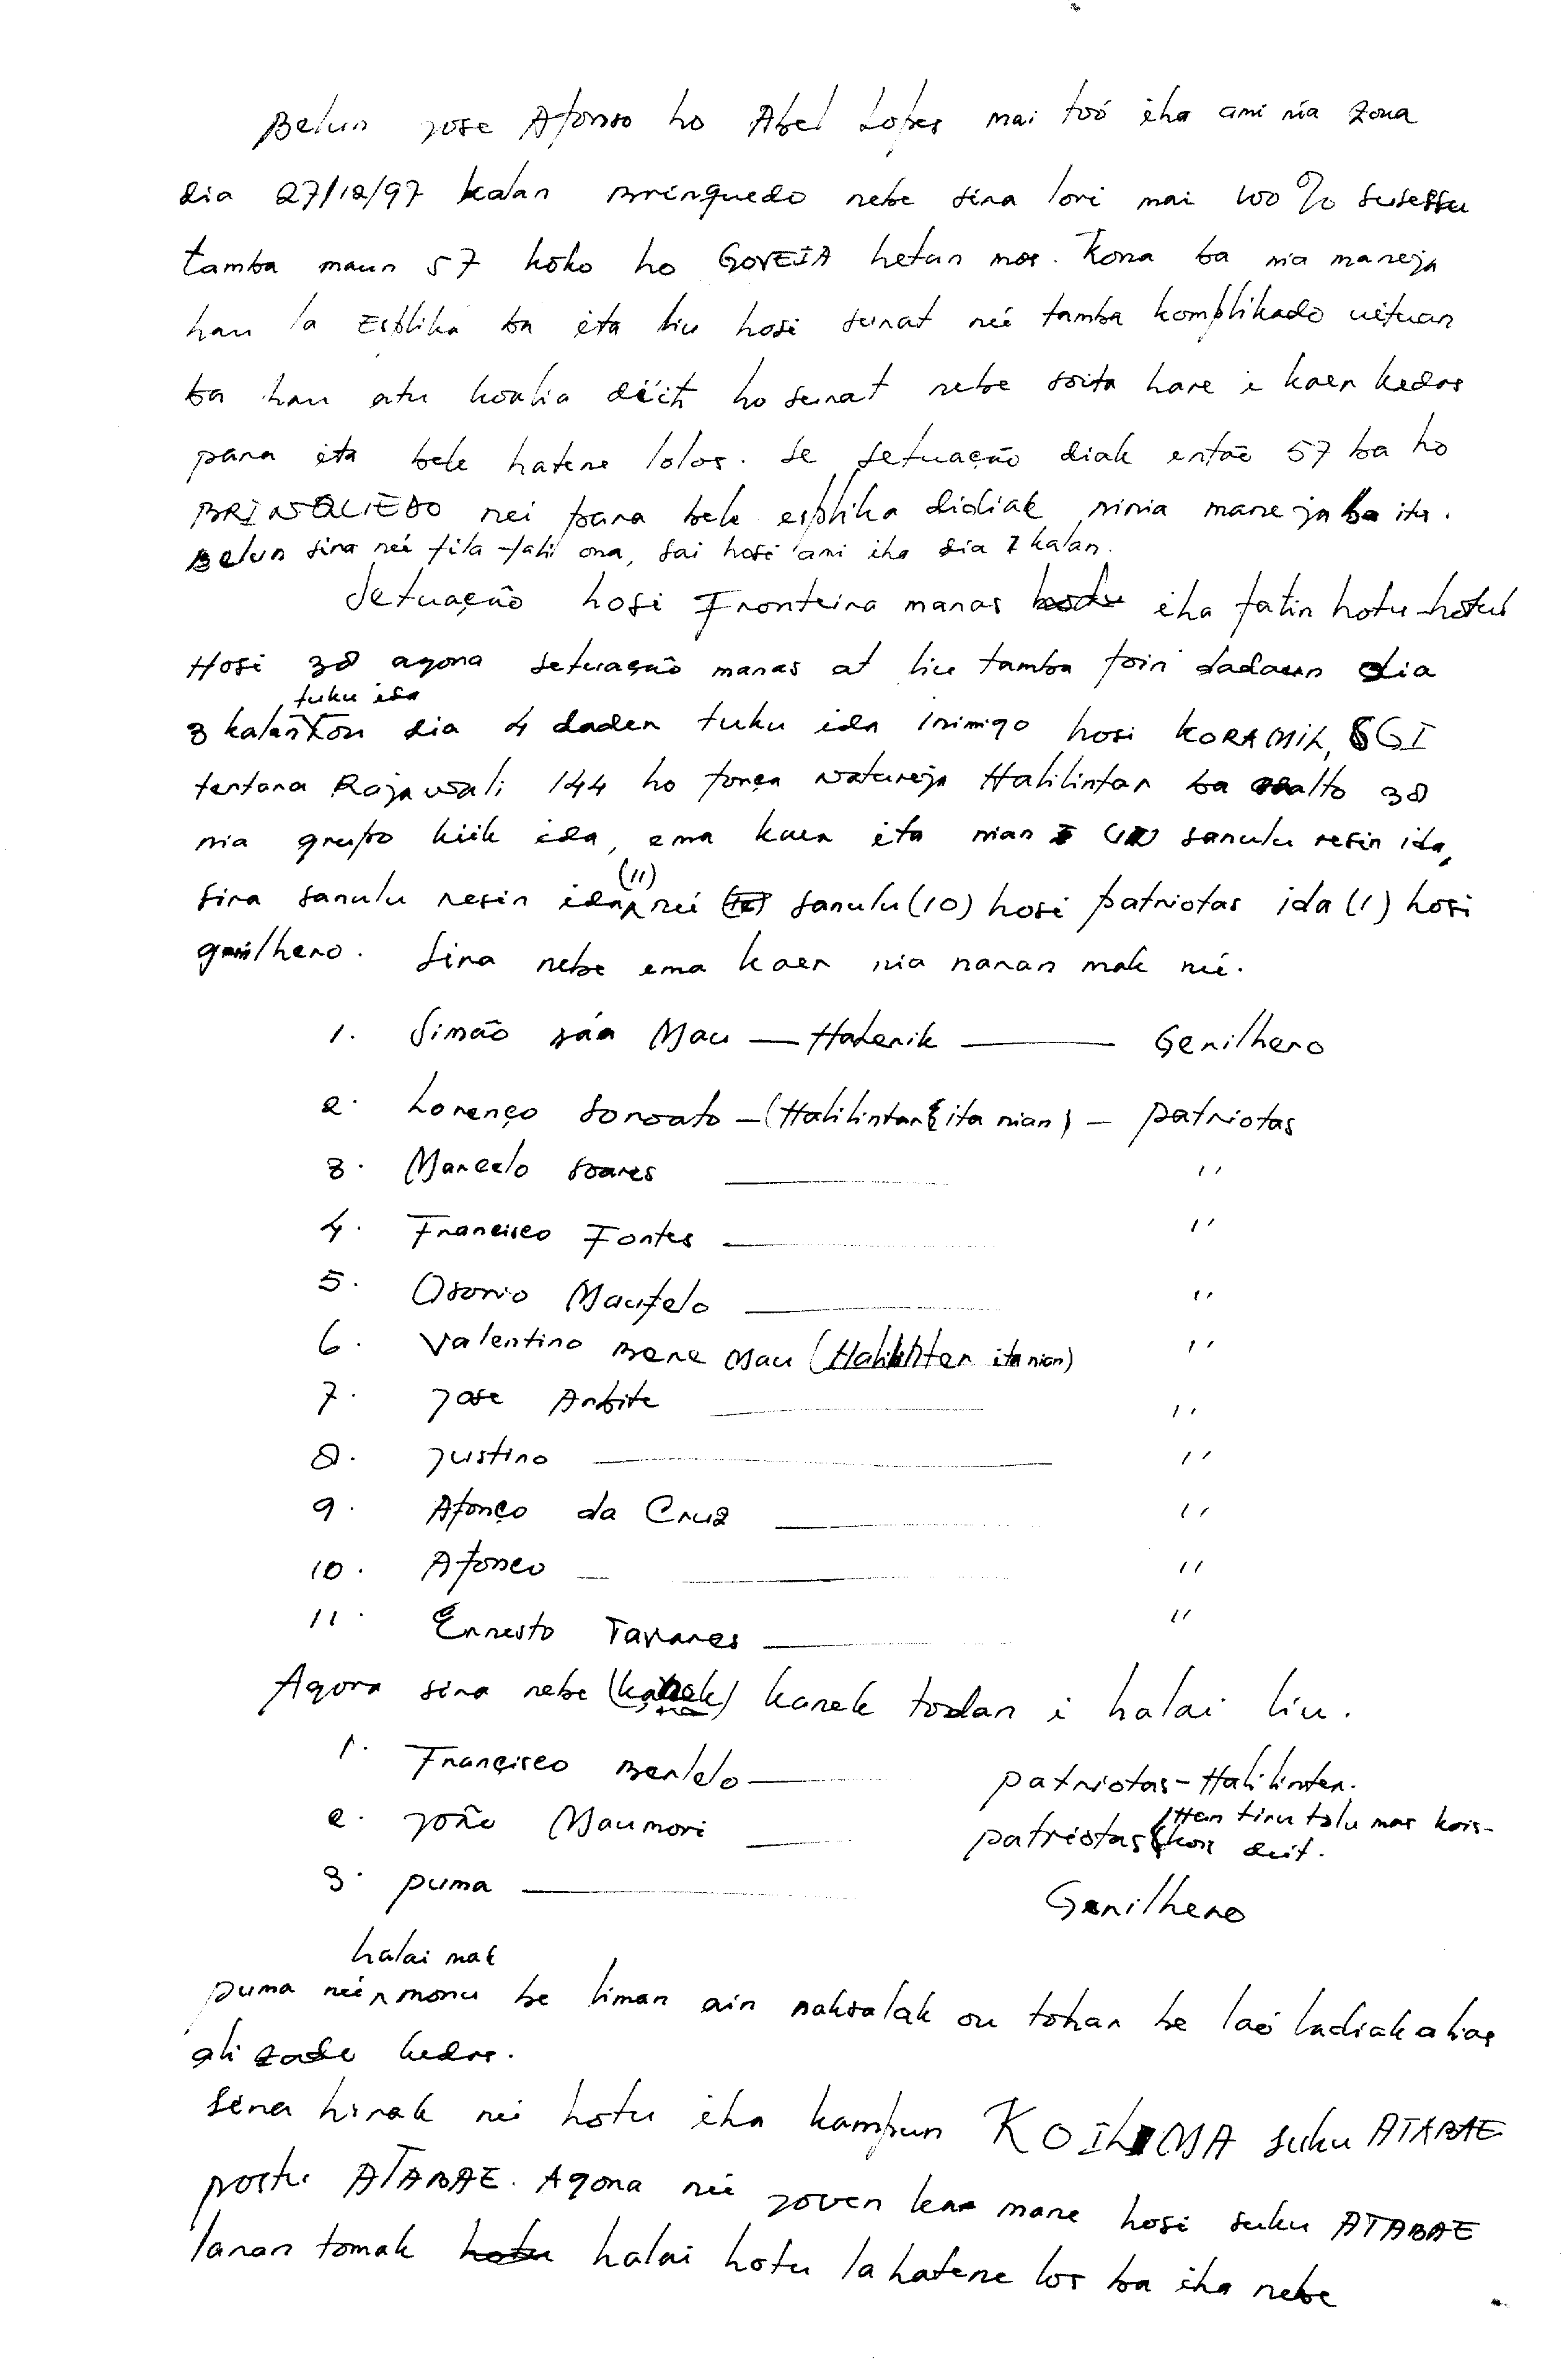 Belun Jose Afonso ho Abel Lopes mai too iha ami nia zona
dia 27/12/97 kalan Brinquedo nebe sira lori mai 100% susessu
tamba maun 57 koko ho GOVEIA hetan mos. Kona ba nia maneja
hau la Esplika ba ita liu hosi surat neé tamba komplikado uituan
ba hau atu koalia deit ho surat nebe soita hare i kaer kedas
para ita bele hatene lolos. Se setuação diak então 57 ba ho
BRINQUEDO nei para bele esplika didiak ninia maneja ba ita.
Belun sira neé fila-fali ona, sai hosi ami iha dia 7 kalan.
Setuação hosi Fronteira manas iha fatin hotu-hotu
Hosi 38 agora setuasão manas at liu tamba foin dadaun dia
3 kalan tuku ida tou dia 4 dader tuku ida inimigo hosi KORAMIL, SGI
tentara Rajawali 144 ho força natureja Halilintar ba asalto 38
nia grupo kiik ida, ema kaer ita nian sanulu resin ida,
sira sanulu resin ida (11) neé sanulu (10) hosi patriotas ida (1) hosi
gerilhero. Sira nebe ema kaer nia naran mak neé.
1. Simão sáa Mau — Haderik —— Gerilhero
2. Lorenço Soroato — (Halilintar ita nian) — patriotas
3. Marcelo soares —— "
4. Francisco Fontes —— "
5. Osorio Maufelo —— "
6. Valentino Bere Mau (Halilinter ita nian) "
7. Jose Arbite —— "
8. Justino —— "
9. Afonço da Cruz —— "
10. Afonso — —— "
11. Ernesto Tavares —— "
Agora sira nebe (kanek) kanek todan i halai liu.
1. Françisco Berlelo —— patriotas - Halilinter.
2. João Maumori —— patriotas (Han tiru tolu mas kois-kois deit.
3. puma —— Gerilhero
puma neé halai mak monu be liman ain naksalak ou tohar be lao ladiak alias
ali zado kedas.
Sira hirak neé hotu iha kampun KOILIMA suku ATABAE
postu ATABAE. Agora neé joven mane hosi suku ATABAE
laran tomak halai hotu la hatene los ba iha nebe